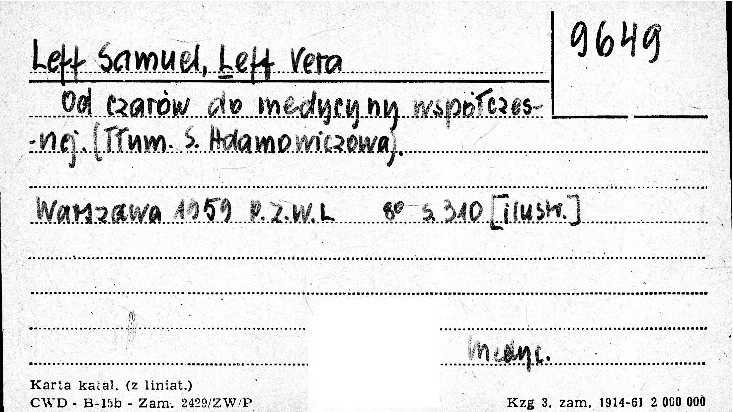 9649
Leff Samuel, Leff Vera
Od czarów do medycyny współczes-
-nej. (Tłum. S. Adamowiczowa).
Warszawa 1959 P.Z.W.L 8° s. 310 [ilustr.]
Medyc.
Karta katal. (z liniat.)
CWD - B-15b - Zam. 2429/ZW/P
Kzg 3, zam, 1914-61 2 000 000